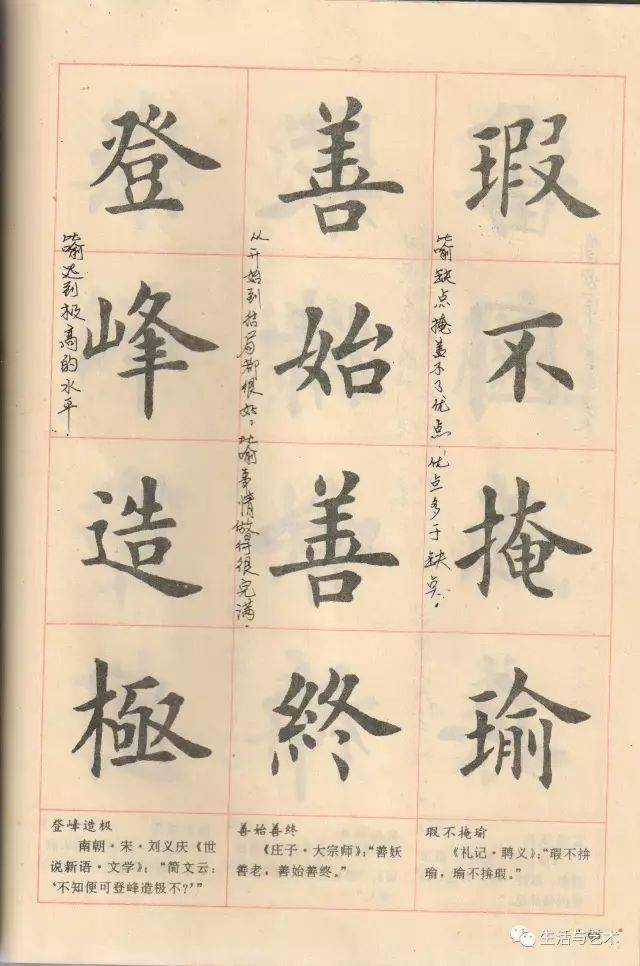 瑕不掩瑜
比喻缺点掩盖不了优点，优点多于缺点。
瑕不掩瑜
《礼记·聘义》：“瑕不揜
瑜，瑜不揜瑕。”
善始善終
从开始到结局都很好。比喻事情做得很完满。
善始善终
《庄子·大宗师》：“善妖
善老，善始善终。”
登峰造極
比喻达到极高的水平。
登峰造极
南朝·宋·刘义庆《世
说新语·文学》：“简文云：
‘不知便可登峰造极不？’”
生活与艺术